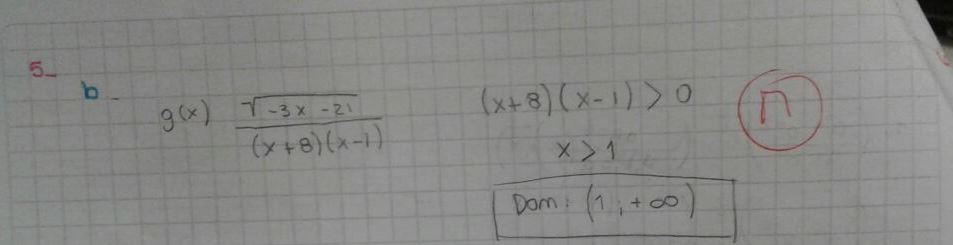 5_
b_
g(x) √-3x-21 / (x+8)(x-1)
(x+8)(x-1) > 0
x > 1
Dom: (1, +∞)